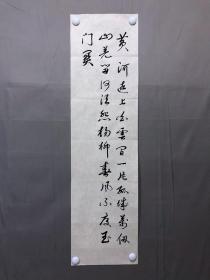 黄河远上白雲间一片孤城萬仞
山羌笛何须怨杨柳春风不度玉
门关